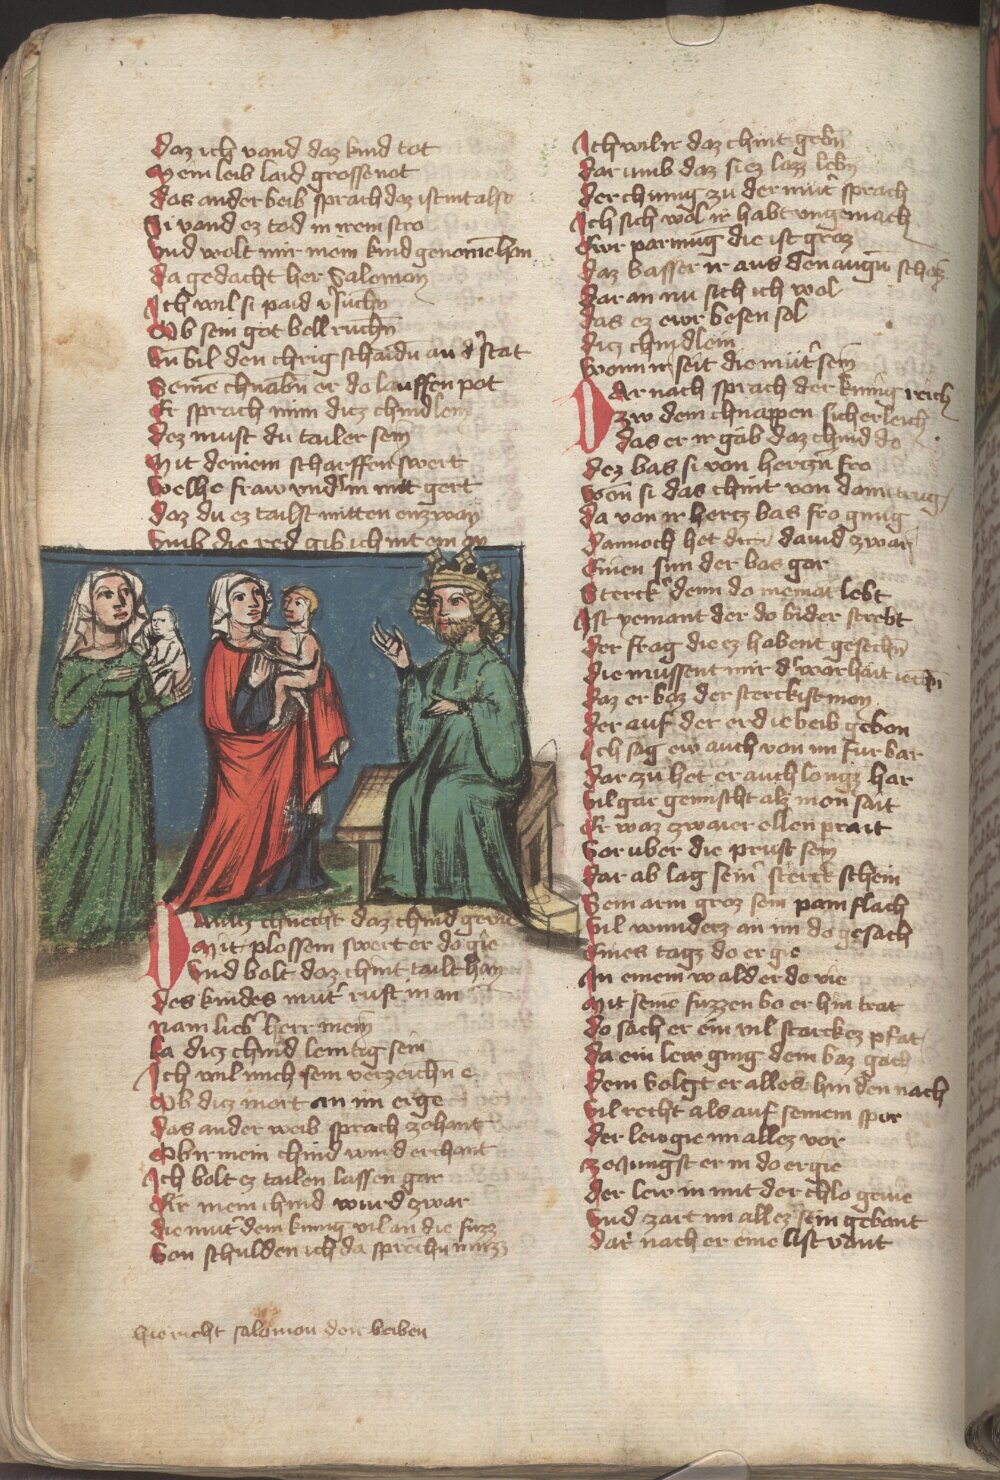 Daz ich vand daz kind tot
Mein leib laid grosse not
Das ander beib sprach daz ist nit also
Si vand ez tod in irem stro
Vnd wolt mir mein kind genomē han
Da gedacht her Salomon
Ich wil si paid v'suchn
Ob sein got bell ruchn
Vn̄ bil den chrig schaidn an d' stat
Seinē chnabn er do lauffen pot
Er sprach nim dicz chindlein
Dez must du tailer sein
Mit deinem scharffen swert
Welhe fraw vnd' in mitt gert
Daz du ez tailst mitten enzway
Vmb die red gib ich nit ein ay
Da nu chnecht daz chind
Mit plossem swert er do gie
Vnd bolt daz chint tailt han
Des kindes mut' ruft in an
Nain lieb' herr mein
La dicz chind lemtig sein
Ich wil mich sein verzeichn̄ e
Ob dicz mort an im erge
Das ander weib sprach zehant
Ob ir mein chind wurd erchant
Ich bolt ez tailen lassen gar
Er mein chind wurd zwar
Die mut' dem kunig vil an die fuzz
Von schulden ich da sprechn muzz
hie richt salomon den beiben
Ich wil ir daz chint gebn
Dar umb daz si ez lazz lebn
Der chunig zu der mut' sprach
Ich sich wol ir habt vngemach
Ewr parmung die ist groz
Daz basser ir aus den augn̄ schoz
Dar an nu sich ich wol
Das ez ewr besen sol
Dicz chindlein
Wann ir seit die mut' sein
Dar nach sprach der kunig reich
Zw dem chnappen sicherleich
Das er ir gab daz chind do
Dez bas si von herczn fro
Won si das chint von dann trug
Da von ir hertz bas fro gnug
Dannoch het dauid zwar
Einen sun der bas gar
Sterck' denn do niemat lebt
Ist yemant der do bider strebt
Der frag die ez habent gesechn̄
Die mussent mir d' warhait
Daz er baz der sterckist man
Der auf der erd ie beib gebon
Ich sag ew auch von im fur bar
Dar zu het er auch longz har
Vil gar gemischt alz mon sait
Er waz zwaier ellen prait
Vor uber die prust sein
Dar ab lag sein' sterck schein
Sein arm groz sein pain flach
Vil wunderz an im do gesach
Eines tagz do er gie
In einem wald er do vie
Mit seinē fuzzen bo er hin trat
Do sach er ein vil starckez pfat
Da ein lew ging dem baz gach
Dem volgt er allez hin den nach
Vil recht als auf seinem spor
Der lew gie im allez vor
Ze iungst er in do ergie
Der lew in mit der chlo geuie
Vnd zart im allez sein gebant
Dar nach er eine list vant